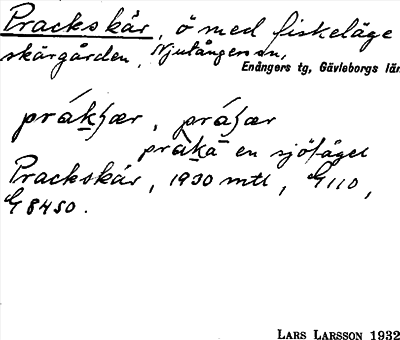 Prackskär, ö med fiskeläge
skärgården, Njutångers sn,
Enångers tg, Gävleborgs län
prákʃær, práʃær
práka en sjöfågel
Prackskär, 1930 mtl, G 110,
G 8450.
LARS LARSSON 1932